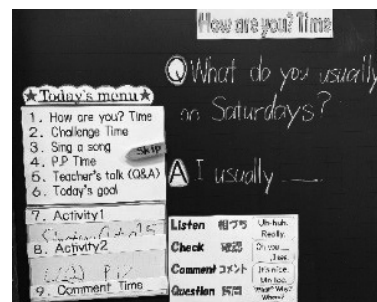 How are you? Time
Q What do you usually
on Saturdays?
A I usually ___.
★Today's menu★
1. How are you? Time
2. Challenge Time
3. Sing a song
4. P.P Time
Skip
5. Teacher's talk (Q&A)
6. Today's goal
7. Activity1
8. Activity2
9. Comment Time
Listen 相づち Uh-huh. Really.
Check 確認 Oh you
Comment コメント It's nice.
Question 質問 What? Why? Where?